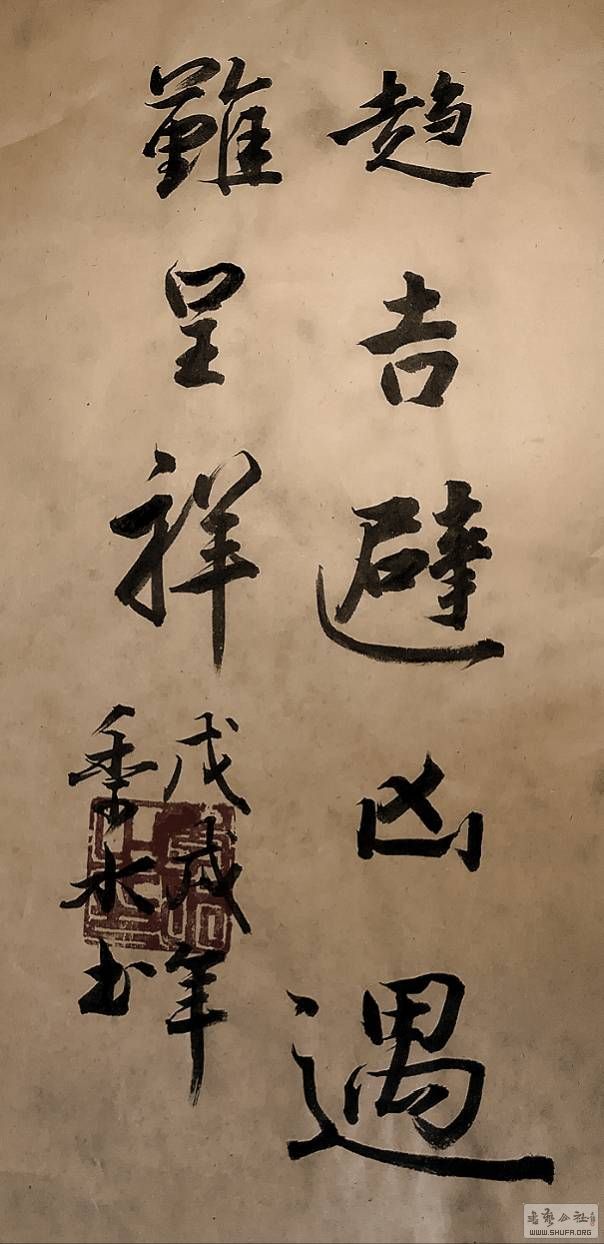 趋吉避凶遇
難呈祥
戊戌年
水书
書藝公社
WWW.SHUFA.ORG